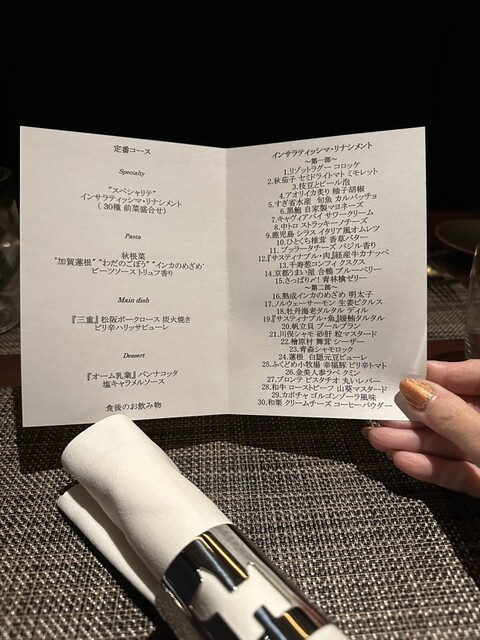 定番コース
Specialty
"スペシャリテ"
インサラティッシマ・リナシメント
( 30種 前菜盛合せ)
Pasta
秋根菜
"加賀蓮根" "わだのごぼう" "インカのめざめ"
ビーツソース トリュフ香り
Main dish
『三重』松阪ポークロース 炭火焼き
ピリ辛ハリッサピューレ
Dessert
『オーム乳業』パンナコッタ
塩キャラメルソース
食後のお飲み物
インサラティッシマ・リナシメント
~第一部~
1.リゾットラグー コロッケ
2.秋茄子 セミドライトマト ミモレット
3.枝豆とビール泡
4.アオリイカ炙り 柚子胡椒
5.すぎ省水産 旬魚 カルパッチョ
6.黒鮑 自家製マヨネーズ
7.キャヴィアパイ サワークリーム
8.中トロ ストラッキーノチーズ
9.鹿児島 シラス イタリア風オムレツ
10.ひとくち椎茸 香草バター
11.ブッラータチーズ バジル香り
12.『サスティナブル・肉』経産牛カナッペ
13.千寿葱コンフィ クスクス
14.京都うまい屋 合鴨 ブルーベリー
15.さっぱり〆! 青林檎ゼリー
~第二部~
16.熟成インカのめざめ 明太子
17.ノルウェーサーモン 生姜ピクルス
18.牡丹海老タルタル ディル
19.『サスティナブル・魚』縞鯵タルタル
20.帆立貝 ブールブラン
21.川俣シャモ 砂肝 粒マスタード
22.檜原村 舞茸 シーザー
23.青森シャモロック
24.蓮根 白隠元豆ピューレ
25.ふくどめ小牧場 幸福豚 ピリ辛トマト
26.金美人参ラペ クミン
27.ブロンテ ピスタチオ 丸いレバー
28.和牛 ローストビーフ 山葵マスタード
29.カボチャ ゴルゴンゾーラ風味
30.和栗 クリームチーズ コーヒーパウダー